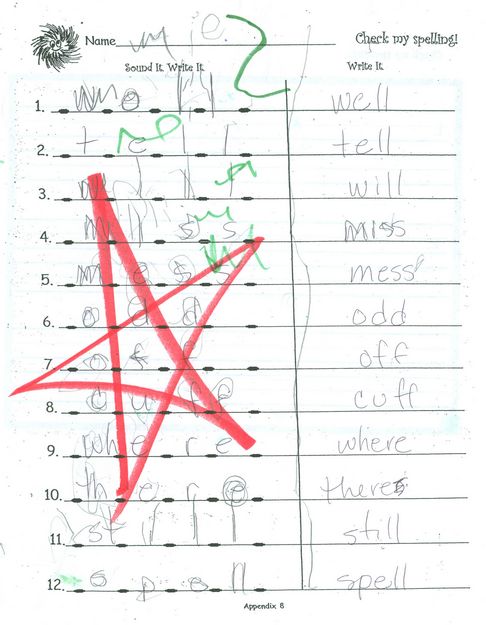 Name Check my spelling!
Sound It. Write It. Write It.
1. well
2. tell tell
3. will
4. miss
5. mess mess
6. odd odd
7. off off
8. cuff cuff
9. where where
10. there there
11. still still
12. spell
Appendix 8